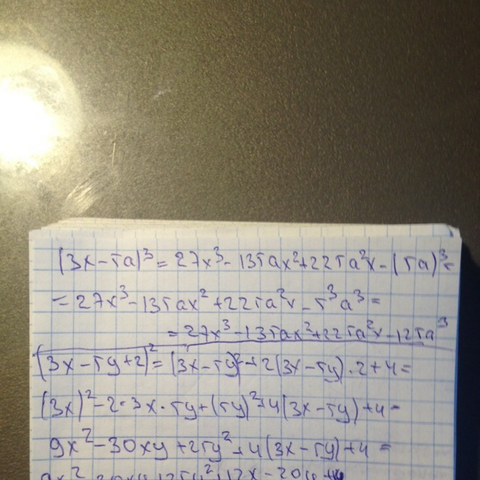 (3x-5a)³ = 27x³ - 135ax² + 225a²x - (5a)³ =
= 27x³ - 135ax² + 225a²x - 5³a³ =
= 27x³ - 135ax² + 225a²x - 125a³
(3x-5y+2)² = (3x-5y)² + 2(3x-5y)·2 + 4 =
(3x)² - 2·3x·5y + (5y)² + 4(3x-5y) + 4 =
9x² - 30xy + 25y² + 4(3x-5y) + 4 =
9x² - 30xy + 25y² + 12x - 20y + 4